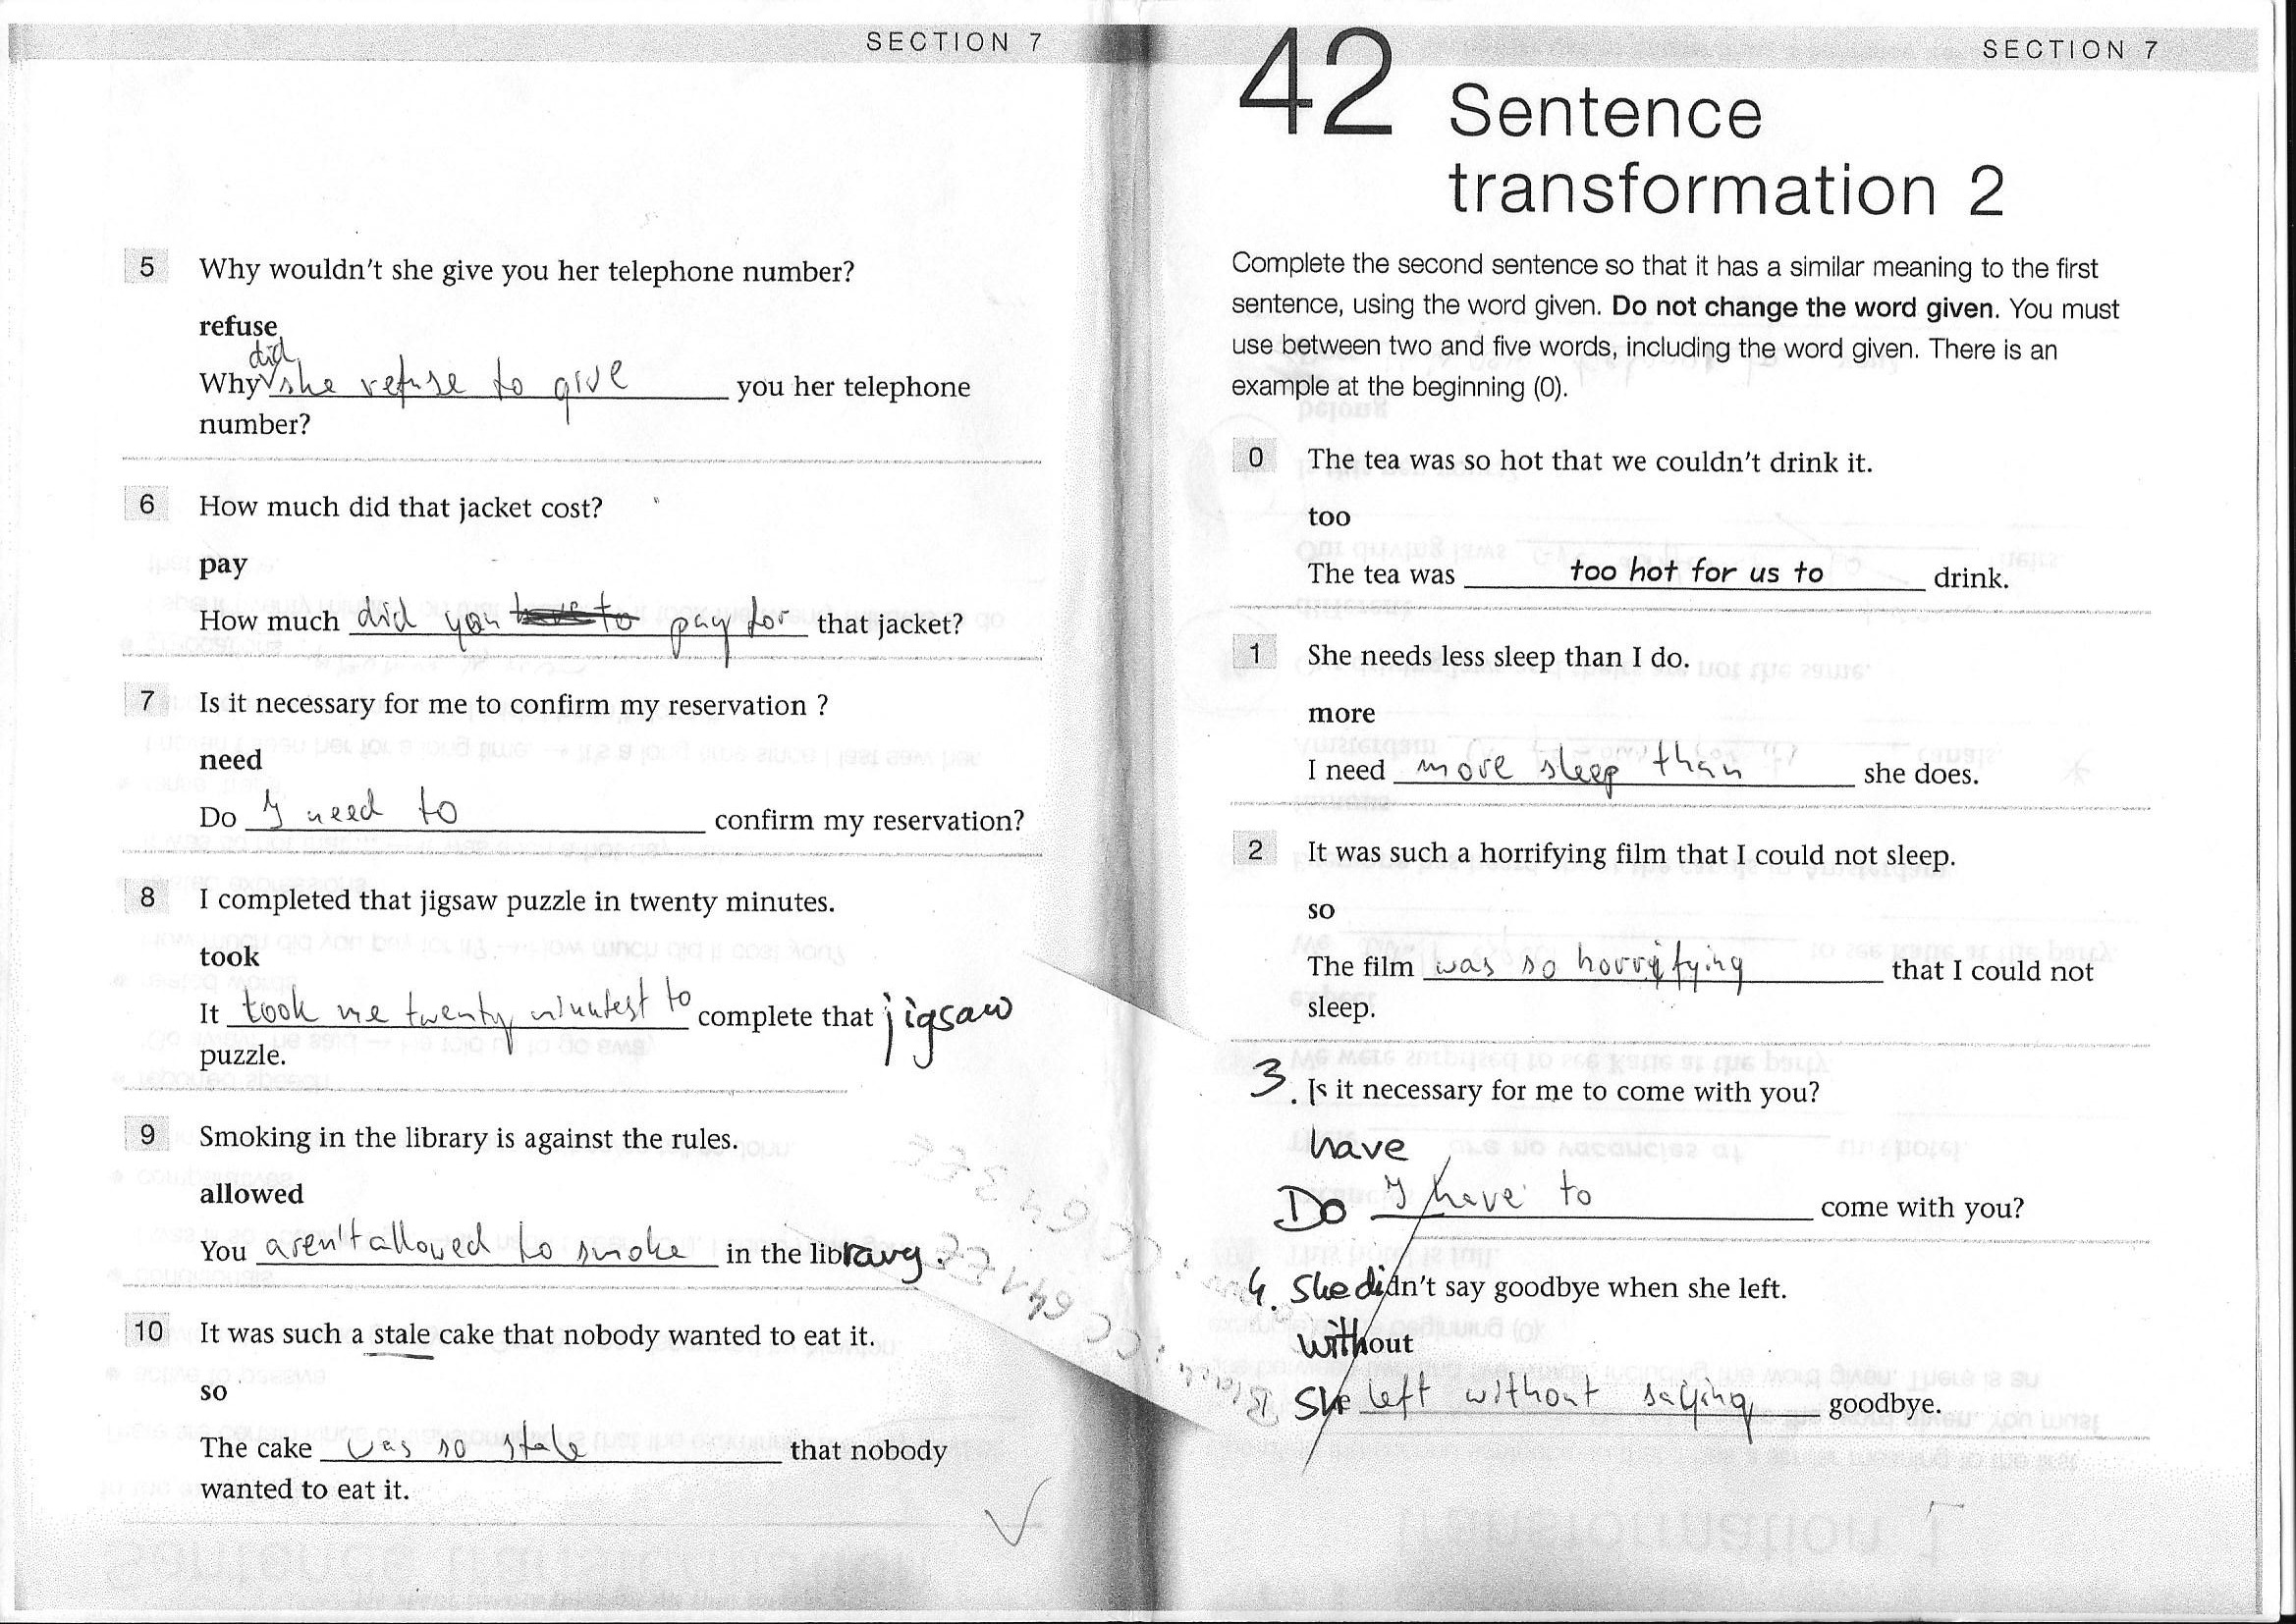 SECTION 7
5 Why wouldn't she give you her telephone number?
refuse
did
Why she refuse to give you her telephone
number?
6 How much did that jacket cost?
pay
How much did you pay for that jacket?
7 Is it necessary for me to confirm my reservation ?
need
Do I need to confirm my reservation?
8 I completed that jigsaw puzzle in twenty minutes.
took
It took me twenty minutest to complete that jigsaw
puzzle.
9 Smoking in the library is against the rules.
allowed
You aren't allowed to smoke in the library.
10 It was such a stale cake that nobody wanted to eat it.
so
The cake was so stale that nobody
wanted to eat it.
SECTION 7
42 Sentence
transformation 2
Complete the second sentence so that it has a similar meaning to the first
sentence, using the word given. Do not change the word given. You must
use between two and five words, including the word given. There is an
example at the beginning (0).
0 The tea was so hot that we couldn't drink it.
too
The tea was too hot for us to drink.
1 She needs less sleep than I do.
more
I need more sleep than she does.
2 It was such a horrifying film that I could not sleep.
so
The film was so horrifying that I could not
sleep.
3. Is it necessary for me to come with you?
have
Do I have to come with you?
4. She didn't say goodbye when she left.
without
She left without saying goodbye.